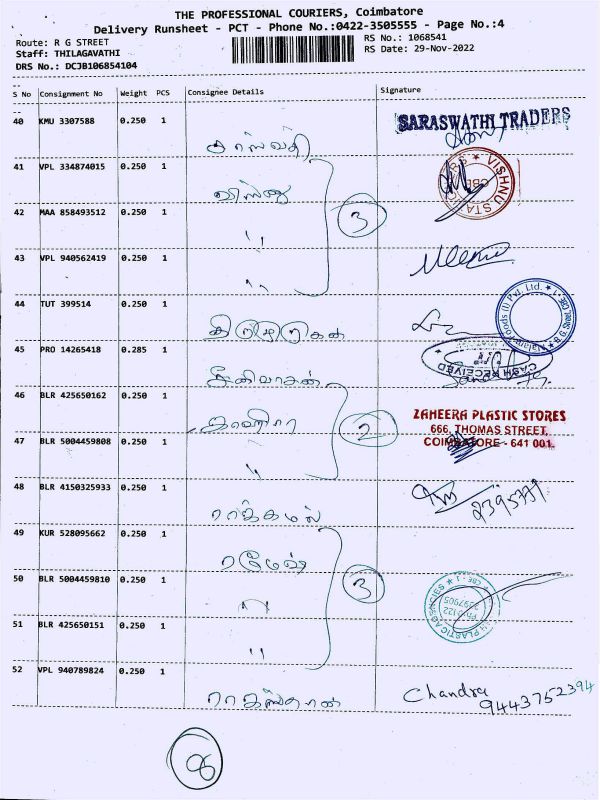 THE PROFESSIONAL COURIERS, Coimbatore
Delivery Runsheet - PCT - Phone No.:0422-3505555 - Page No.:4
Route: R G STREET RS No.: 1068541
Staff: THILAGAVATHI RS Date: 29-Nov-2022
DRS No.: DCJB106854104
S No Consignment No Weight PCS Consignee Details Signature
40 KMU 3307588 0.250 1 SARASWATHI TRADERS
41 VPL 334874015 0.250 1 விஸ்ணு VISHNU
42 MAA 858493512 0.250 1 " 3
43 VPL 940562419 0.250 1 "
44 TUT 399514 0.250 1
45 PRO 14265418 0.285 1 சீனிவாசன் CASH RECEIVED
46 BLR 425650162 0.250 1 ஜாஹிரா ZAHEERA PLASTIC STORES
666, THOMAS STREET,
COIMBATORE - 641 001.
47 BLR 5004459808 0.250 1 " 2
48 BLR 4150325933 0.250 1 ராஜ்கமல் 2395771
49 KUR 528095662 0.250 1 ரமேஷ்
50 BLR 5004459810 0.250 1 " 3 PLASTIC AGENCIES
51 BLR 425650151 0.250 1 "
52 VPL 940789824 0.250 1 ராஜஸ்தான் Chandra
9443752394